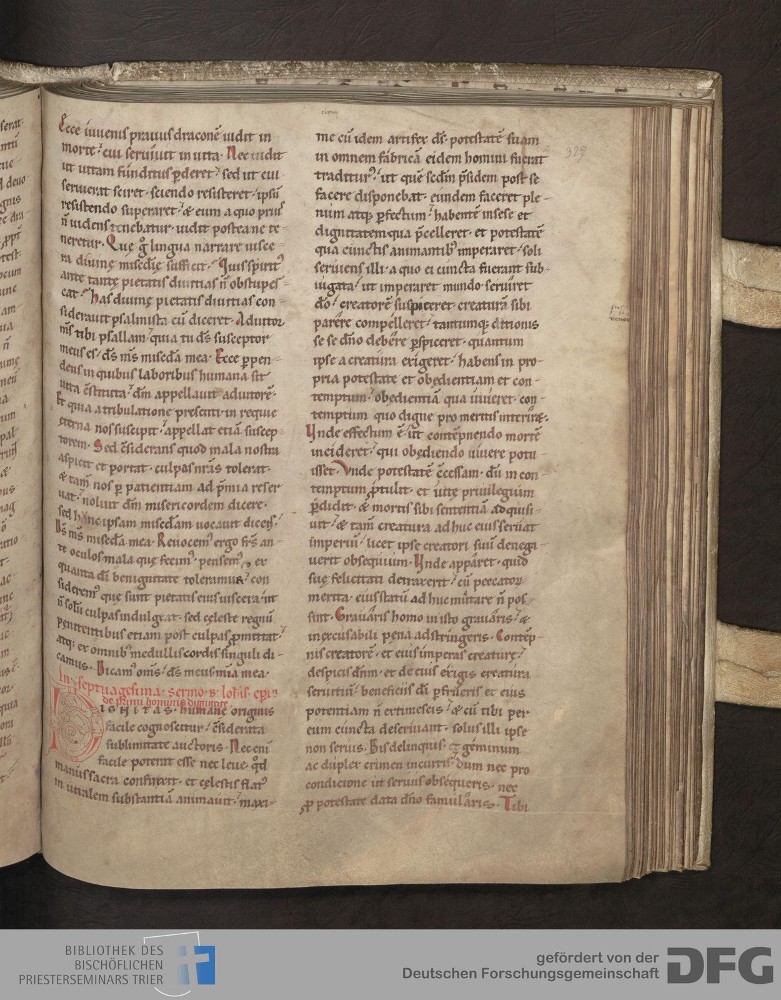 Ecce iuuenis prauus draconē uidit in
morte· cui seruiuit in uita· Nec uidit
ut uitam funditus ꝑderet· sed ut cui
seruierat sciret· sciendo resisteret· ipsū
resistendo superaret· & eum a quo prius
n̄ uidens tenebatur· uidit postea ne te-
neretur· Que ḡ lingua narrare uisce-
ra diuinę misc̄dię sufficit· Quis spiritꝰ
ante tantę pietatis diuitias n̄ obstupes-
cat· Has diuinę pietatis diuitias con-
siderauit psalmista cū diceret· Adiutor
m̄s tibi psallam· quia tu d̄s susceptor
meus es· d̄s m̄s misc̄dia mea· Ecce ꝑpen-
dens in quibus laboribus humana sit
uita c̄stituta· d̄m appellauit adiutorē·
Et quia a tribulatione presenti in requie
eterna nos suscipit· appellat etiā suscep-
torem· Sed c̄siderans quod mala nostra
aspicit et portat· culpas nr̄as tolerat·
& tam̄ nos ꝑ patientiam ad p̄mia reser
uat· noluit d̄m misericordem dicere·
sed hanc ipsam misc̄diam uocauit dicens·
D̄s m̄s misc̄dia mea· Reuocem ergo fr̄s an-
te oculos mala que fecimꝰ· pensemꝰ ex
quanta d̄i benignitate toleramur· con
sideremꝰ que sunt pietatis eius uiscera· ut
n̄ solū culpas indulgeat· sed celeste regnū
penitentibus etiam post culpas ꝓmittat·
atq; ex omnibꝰ medullis cordis singuli di-
camus· Dicam om̄s· d̄s meus mia mea·
In septuagesima· sermo· s· ioh̄is· ep̄i·
de primi hominis dignitate
DIGNITAS· humane originis
facile cognoscitur· c̄siderata
sublimitate auctoris· Nec eni
facile poterat esse nec leue· qd̄
manus sacra confinxit· et cęlestis flatꝰ
in uitalem substantiā animauit· maxi-
me cū idem artifex d̄s· potestatē suam
in omnem fabricā eidem homini fuerat
traditurꝰ· ut quē sc̄dm p̄sidem post se
facere disponebat· eundem faceret ple-
num atq; ꝑfectum· habentē in se et
dignitatem qua p̄celleret· et potestatē
qua cunctis animantibꝰ imperaret· soli
seruiens illi· a quo ei cuncta fuerant sub-
iugata· ut imperaret mundo· seruiret
d̄o· creatorē suspiceret· creaturā sibi
parēre compelleret· tantumq; ditionis
se se dn̄o debēre ꝑspiceret· quantum
ipse a creatura exigeret· habens in pro-
pria potestate et obędientiam et con-
temptum· obędientiā qua uiueret· con-
temptum quo digne pro meritis interiret·
Unde effectum ē· ut contēpnendo mortē
incideret· qui obędiendo uiuere potu-
isset· Unde potestatē c̄cessam· dū in con-
temptum ꝓtulit· et uitę priuilegium
ꝑdidit· & mortis sibi sententiā adquisi-
uit· & tam̄ creatura adhuc eius seruat
imperiū· licet ipse creatori suū denega
uerit obsequium· Unde apparet· quid
suę felicitati detraxerit· cū peccator
merita· eius statū adhuc mutare n̄ pos-
sint· Grauaris homo in isto grauaris· &
inexcusabili pena adstringeris· Contēp-
nis creatorē· et cuius imperas creaturę·
despicis d̄nm· et de cuius exigis creatura
seruitiū· beneficiis d̄i ꝑfrueris et eius
potentiam n̄ extimescis· & cū tibi per
eum cuncta deseruiant· solus illi ipse
non seruis· Bis delinquis· et geminum
ac duplex crimen incurris· dum nec pro
condicione iuri seruis obsequeris· nec
ꝓ potestate data dn̄o famularis· Tibi
329
BIBLIOTHEK DES
BISCHÖFLICHEN
PRIESTERSEMINARS TRIER
gefördert von der
Deutschen Forschungsgemeinschaft
DFG